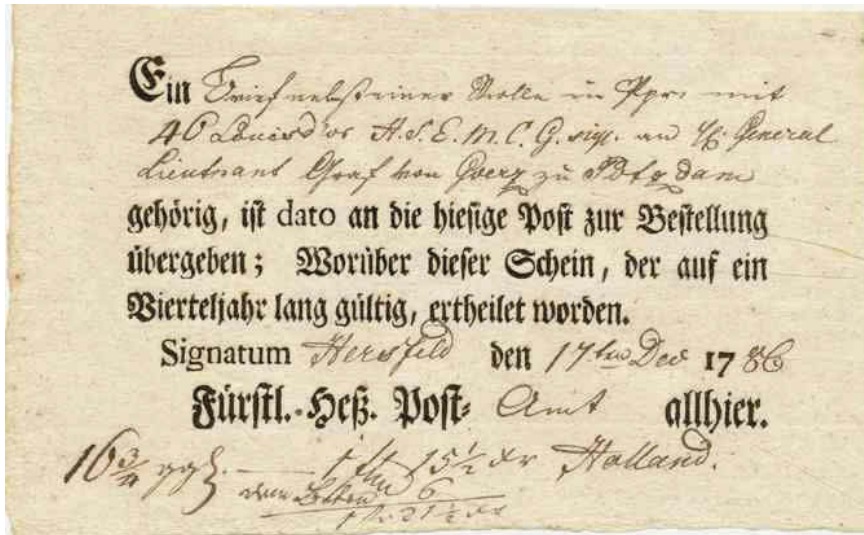 Ein Brief nebst einer Rolle in Ppr. mit
40 Louisd'or H. S. E. M. C. G. sign. an General
Lieutnant Graf von Goerz zu Potsdam
gehörig, ist dato an die hiesige Post zur Bestellung
übergeben; Worüber dieser Schein, der auf ein
Vierteljahr lang gültig, ertheilet worden.
Signatum Hersfeld den 17ten Dec 1786
Fürstl. Heß. Post- Amt allhier.
16 3/4 ggl. — 1 15 1/2 xr Holland.
6
1 21 1/2 xr